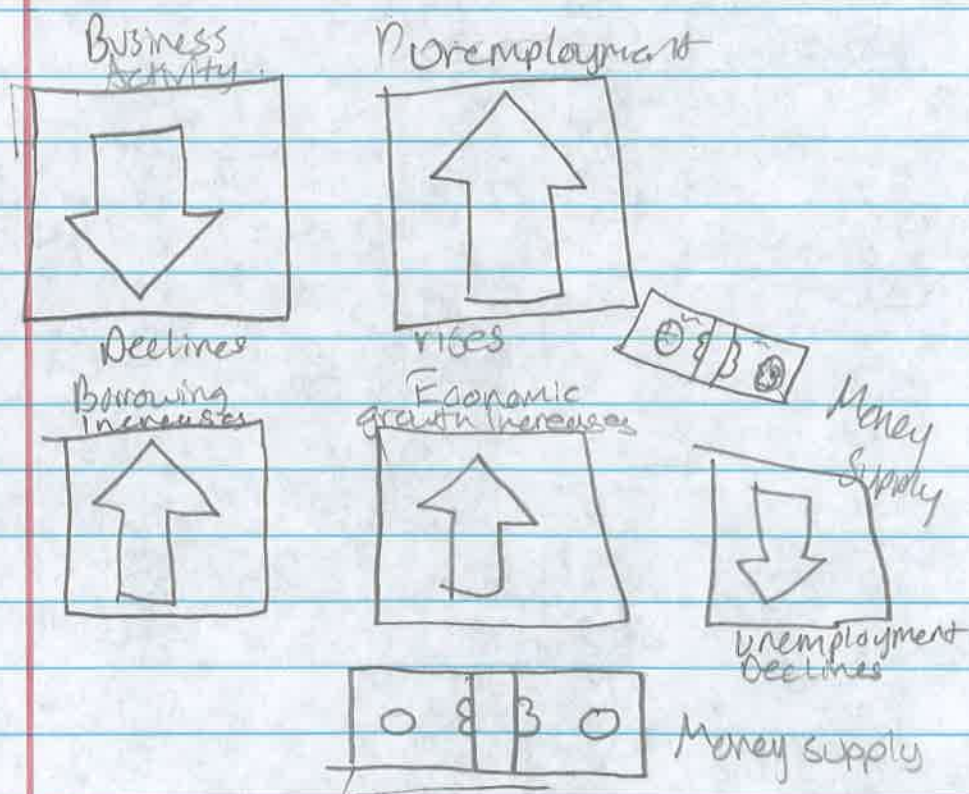 Business
Activity
Unemployment
Declines
rises
Borrowing
Increases
Economic
growth Increases
Money
Supply
Unemployment
Declines
Money supply